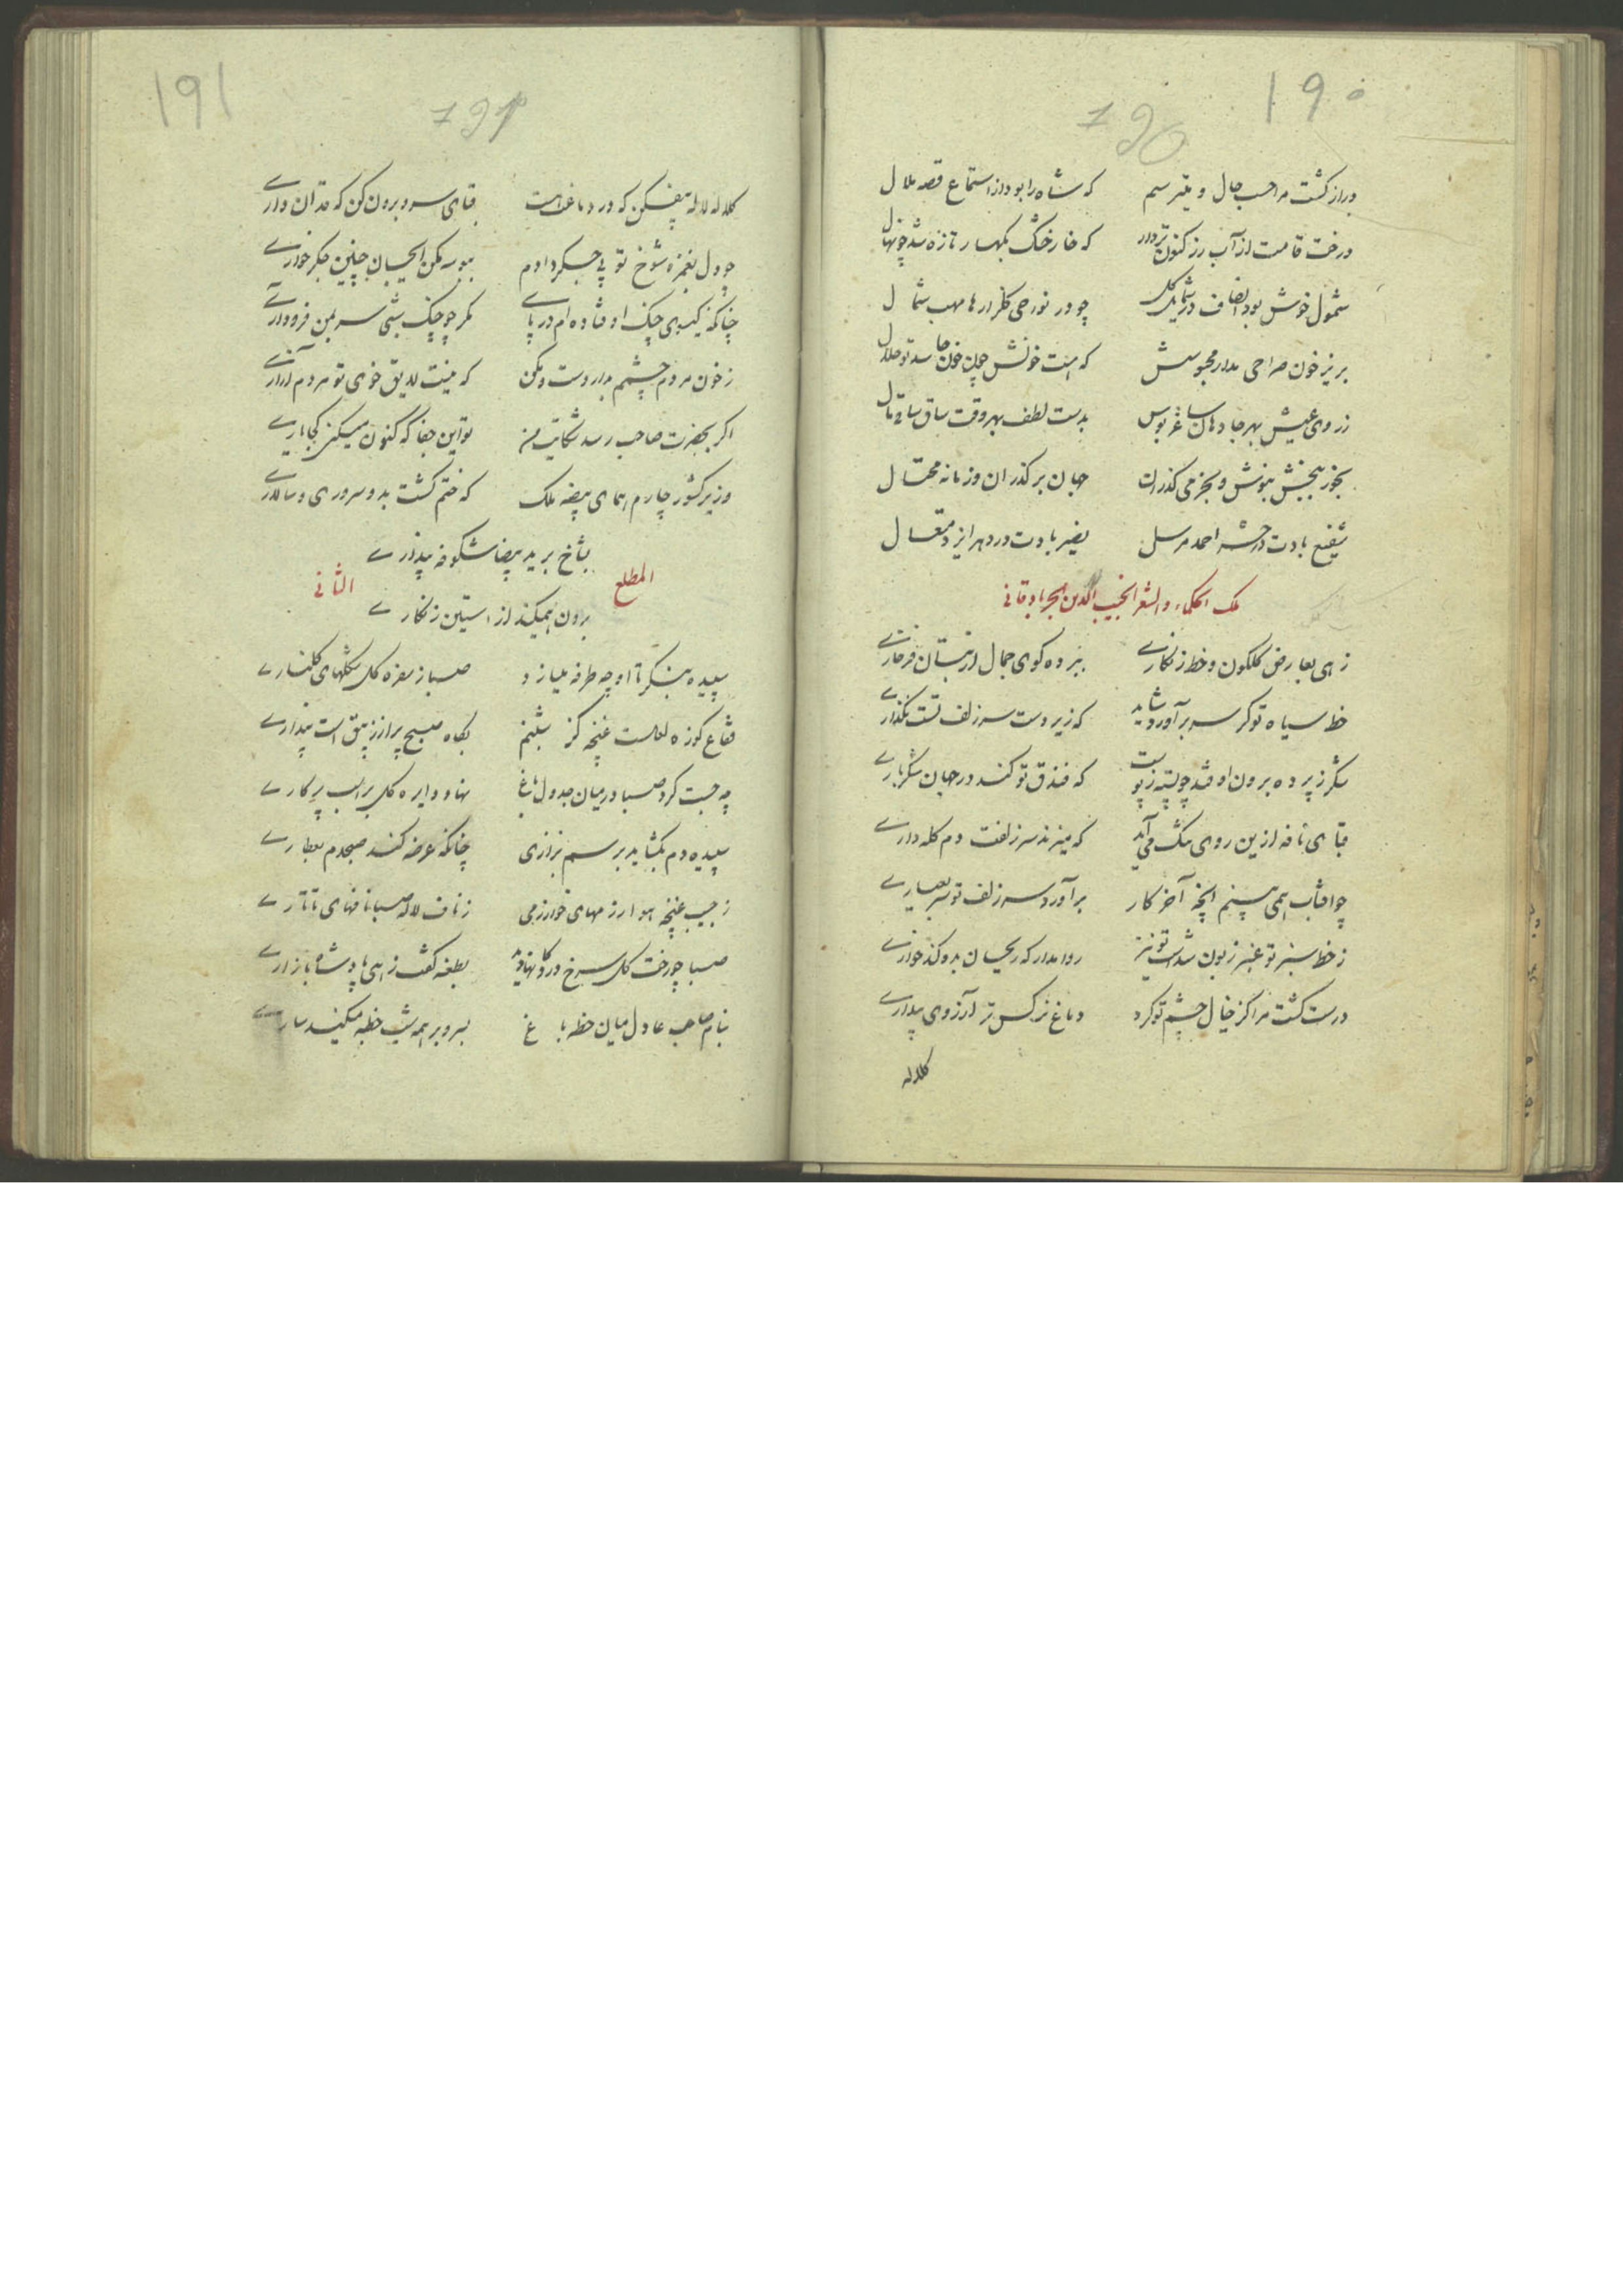 ۱۹۰
190
دراز گشت مرا حسب حال و میترسم که شاه را بود از استماع قصه ملال
درخت قامت از آب رز کنون تر دار که خار خشک بکهسار تازه شد چو نهال
شمول خوش بود انصاف در شمایل کل چو در نوردی کلزارها مهب شمال
بریز خون صراحی مدار محبوسش که هست خونش چون خون حاسد تو حلال
ز روی عیش بهر جا دهان ساغر بوس بدست لطف بهر وقت ساق ساقی مال
بخور ببخش بنوش و بخرمی گذران جهان برگذران و زمانه محتال
شفیع بادت در حشر احمد مرسل نصیر بادت در دهر ایزد متعال
ملک الحکماء و الشعرا نجیب الدین الجربادقانی
زهی بعارض کلکون و خط زنکاری ببرده کوی جمال از بتان فرخاری
خط سیاه تو گر سر برآورد شاید که زیردست سر زلف تست نگذاری
شکر ز پرده برون اوفتد چو پسته ز پوست که فندق تو کند در جهان شکرباری
قبای نافه ازین روی مشک می‌آید که میزند سر زلفت دم کله داری
چو افتاب همی بینم انچه آخر کار برآورد سر زلف تو سر بعیاری
ز خط سبز تو عنبر زبون شدست تو نیز روا مدار که ریحان بدو کند خواری
درست گشت مرا کز خیال چشم تو کرد دماغ نرکس تر آرزوی بیداری
کلاله
۱۹۱
191
کلاله لاله بیفکن که در دماغت هست قبای سرو برون کن که قد ان داری
چو دل بغمزه شوخ تو بی جگر دادم ببوسه مکن ای جان چنین جگر خواری
چنانکه گیسوی چنک اوفتاده‌ام در پای مگر چو چنک شبی سر بمن فرود آری
ز خون مردم چشمم بدار دست و مکن که نیست لایق خوی تو مردم آزاری
اگر بحضرت صاحب رسد شکایت من تو این جفا که کنون میکنی کجا یاری
وزیر کشور چارم همای بیضه ملک که ختم گشت بدو سروری و سالاری
بشاخ بر ید بیضا شکوفه پنداری
المطلع الثانی
برون همیکند از استین زنکاری
سپیده بنگر تا او چه طرفه میسازد صبا ز سفره کل شکلهای کلناری
فقاع کوزه لعلست غنچه کز شبنم بگاه صبح پر از زیبق است پنداری
چه جست کرد صبا در میان جدول باغ نهاد دایره کل بر اب پرکاری
سپیده دم بگشاید برسم بزازی چنانکه عرضه کند صبحدم بعطاری
ز جیب غنچه هوا رزمهای خوارزمی ز ناف لاله صبا نافهای تاتاری
صبا چو رخت کل سرخ در دکا نهاد بدید بطعنه گفت زهی پادشاه بازاری
بنام صاحب عادل میان خطه باغ بسرو بر همه شب خطبه میکند ساری